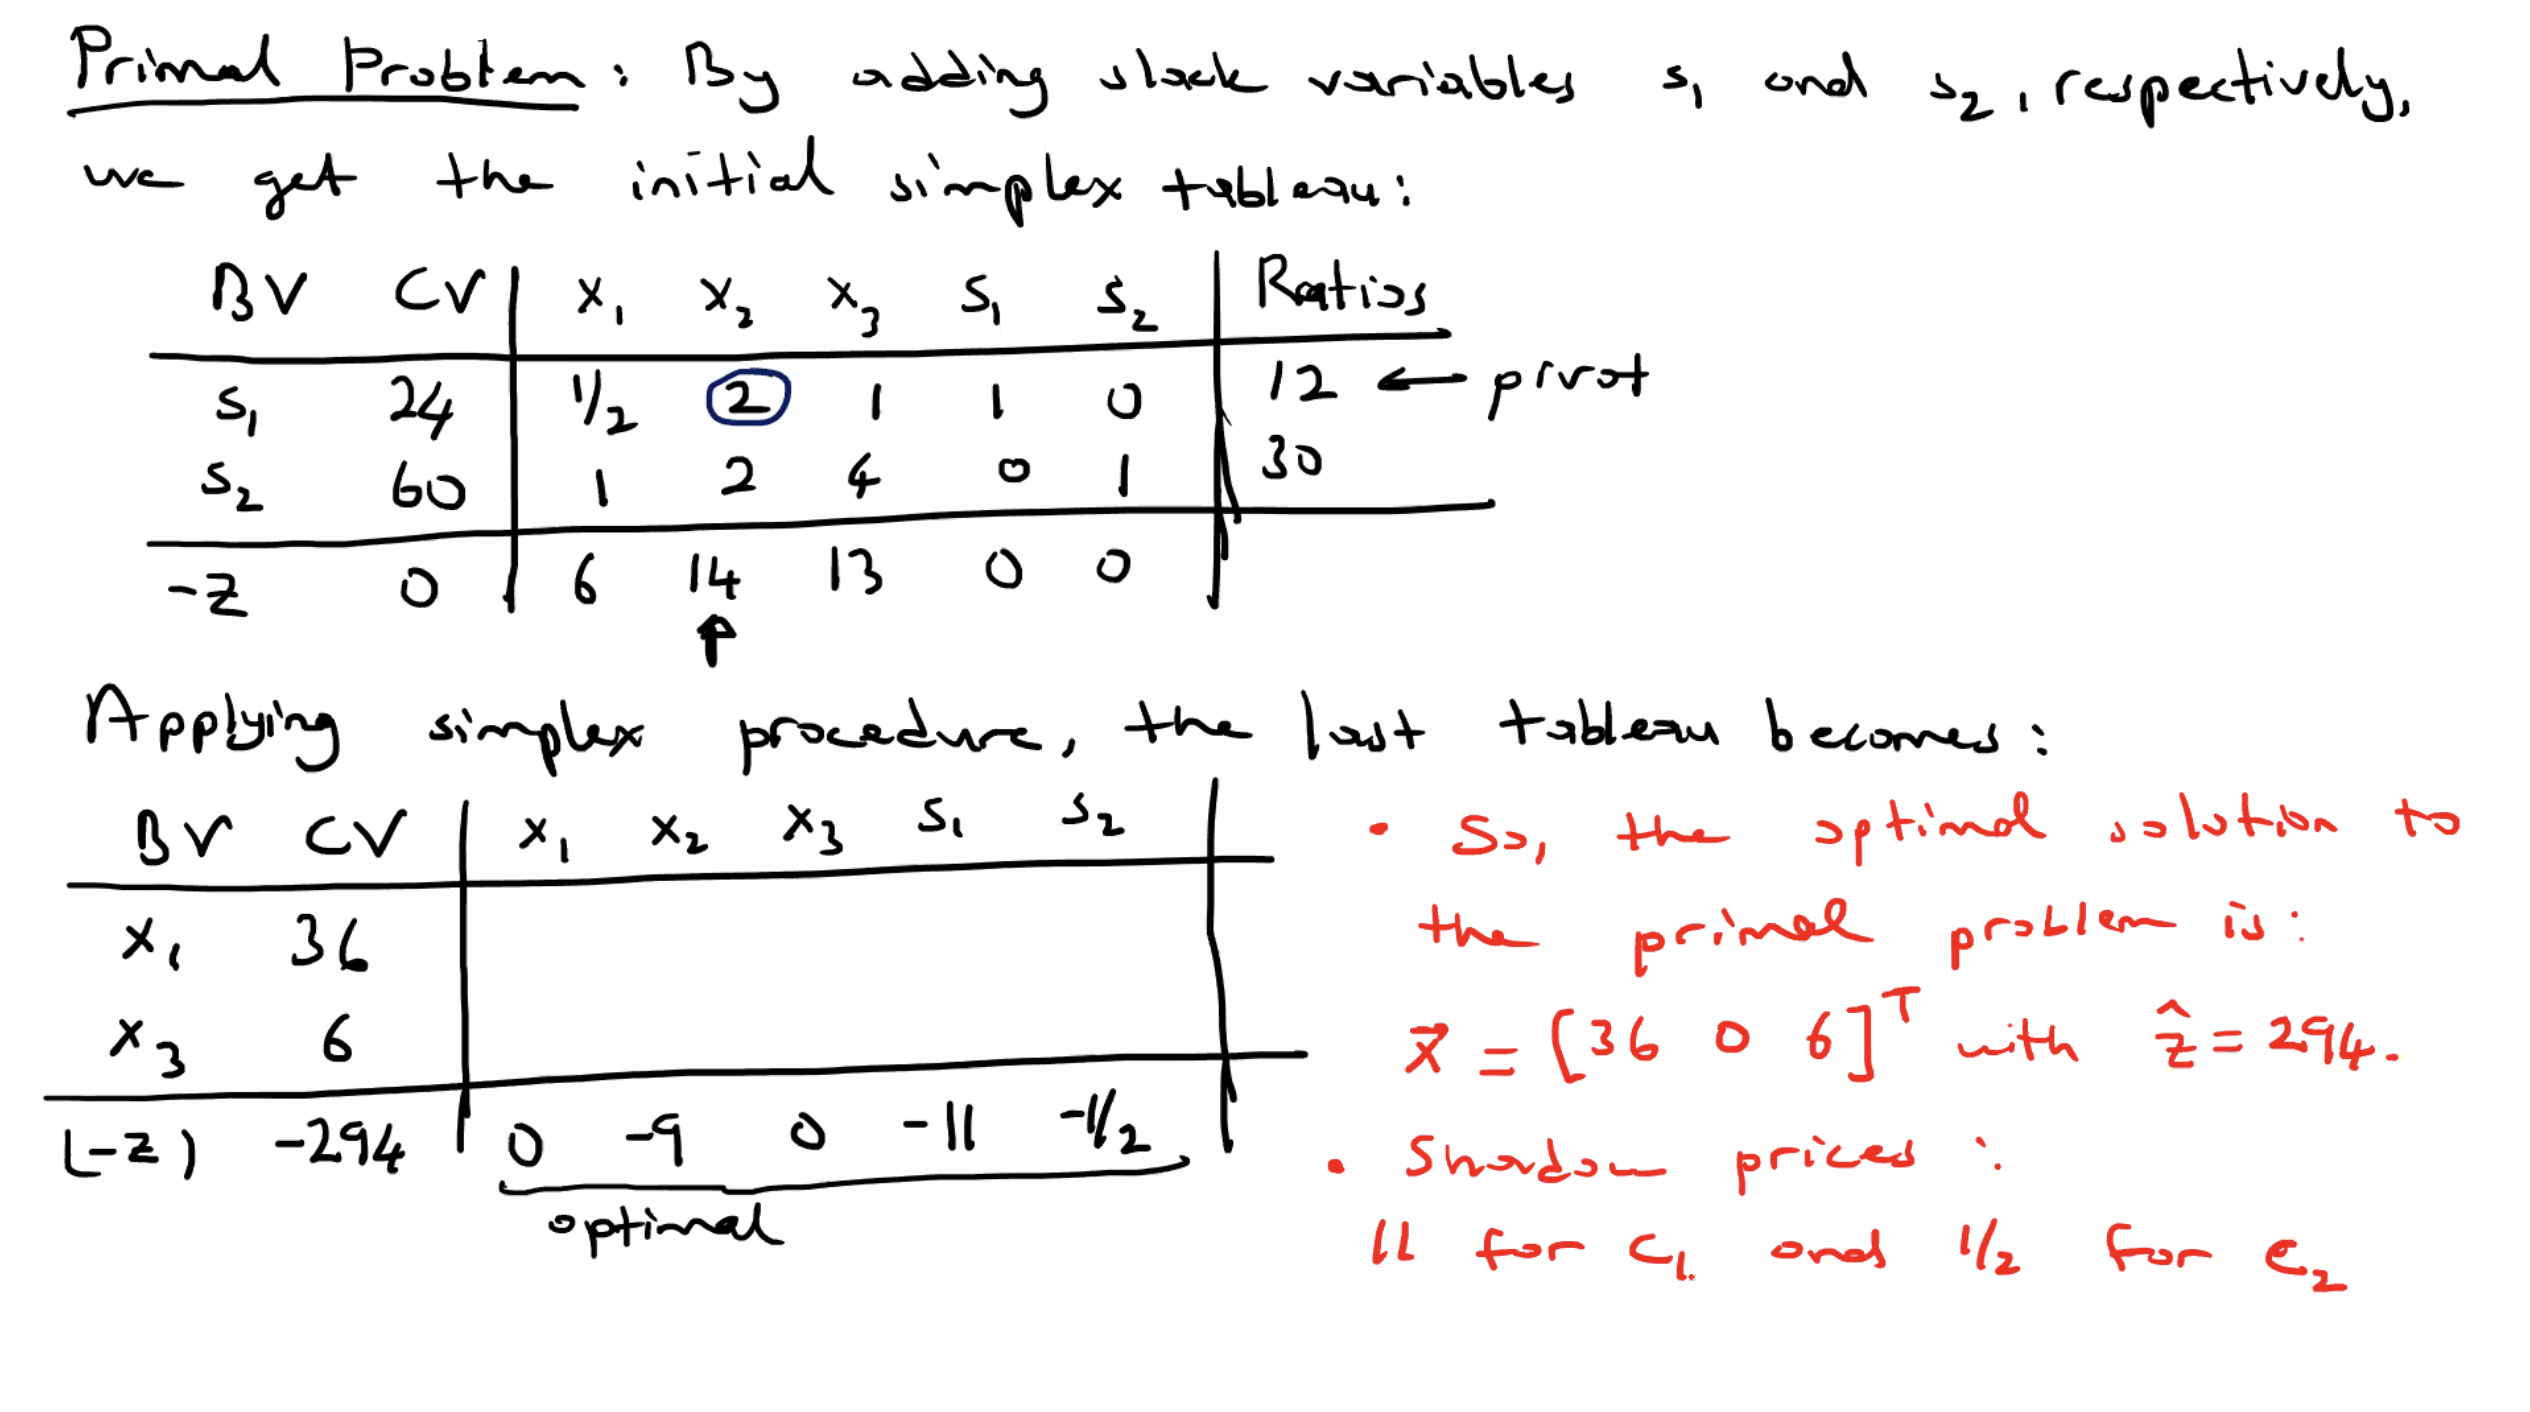 Primal Problem: By adding slack variables s₁ and s₂, respectively,
we get the initial simplex tableau:
BV CV x₁ x₂ x₃ s₁ s₂ Ratios
s₁ 24 1/2 2 1 1 0 12 ← pivot
s₂ 60 1 2 4 0 1 30
-z 0 6 14 13 0 0
↑
Applying simplex procedure, the last tableau becomes:
BV CV x₁ x₂ x₃ s₁ s₂
x₁ 36
x₃ 6
(-z) -294 0 -9 0 -11 -1/2
optimal
• So, the optimal solution to
the primal problem is:
x⃗ = [36 0 6]ᵀ with ẑ = 294.
• Shadow prices :
11 for c₁ and 1/2 for c₂